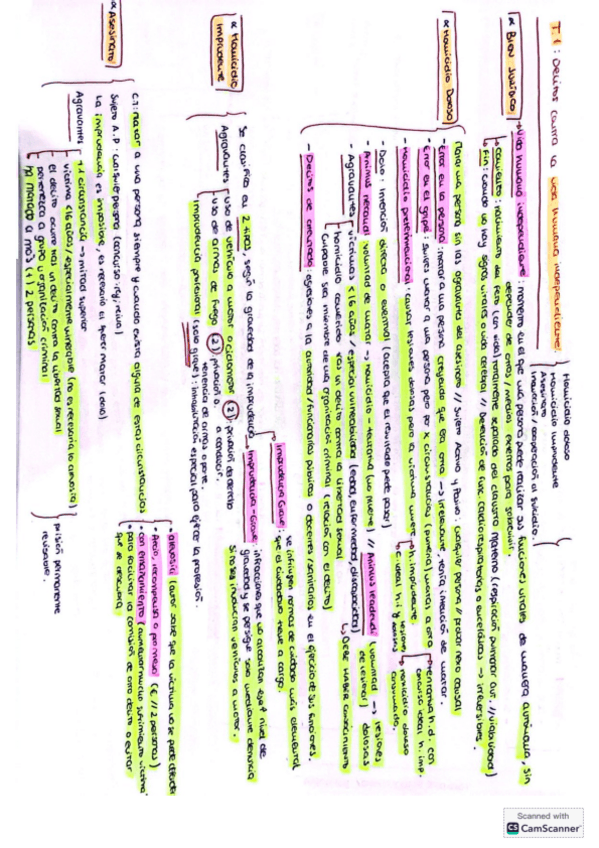 T.1: Delitos contra la vida humana independiente.
Homicidio doloso
Homicidio imprudente
Asesinato
Inducción / cooperación al suicidio.
∝ BIEN JURÍDICO
→ Vida humana independiente: momento en el que una persona puede realizar sus funciones vitales de manera autónoma, sin
depender de otros / medios externos para sobrevivir.
- Comienzo: nacimiento del feto (con vida) totalmente separado del claustro materno (respiración pulmonar aut. // viabilidad)
- Fin: cuando no hay signos vitales o vida cerebral // Detención de func. cardiorespiratorias o encefálicas → irreversibles.
∝ Homicidio Doloso
Matar una persona sin las agravantes del asesinato // Sujeto Activo y Pasivo: cualquier persona // probar nexo causal
- Error en la persona: matar a una persona creyendo que era otra → irrelevante, tenía intención de matar.
- Error en el golpe: quieres matar a una persona pero por x circunstancia (puntería) matas a otra
tentativa h.d. con
concurso ideal h. imp.
- Homicidio preterintencional: causar lesiones dolosas pero la víctima muere
→ h. imprudente
C. ideal h.i y lesiones dolosas
→ homicidio doloso consumado.
- Dolo: intención directa o eventual (acepta que el resultado puede pasar)
- Animus necandi: voluntad de matar → homicidio - tentativa (no muere) // Animus laedendi (voluntad de lesionar) → lesiones dolosas
- Agravantes
víctimas < 16 años / especial vulnerabilidad (edad, enfermedad, discapacidad)
↳ DEBE HABER CONOCIMIENTO
Homicidio cometido tras un delito contra la libertad sexual
Culpable sea miembro de una organización criminal (relación con el delito)
- Delitos de atentado: agresiones a la autoridad / funcionarios públicos o docentes / sanitarios en el ejercicio de sus funciones.
∝ Homicidio Imprudente
Se clasifica en 2 tipos, según la gravedad de la imprudencia
→ Imprudencia Grave: se infringen normas de cuidado más elemental
que el ciudadano tiene a cargo.
→ Imprudencia - Grave: infracciones que no alcanzan ese nivel de
gravedad y se persigue solo mediante denuncia
Agravantes
uso de vehículo a motor o ciclomotor (2) privación derecho
a conducir.
uso de armas de fuego (2) privación
tenencia de armas o porte.
imprudencia profesional (solo grave): inhabilitación especial para ejercer la profesión.
∝ Asesinato
C.T: matar a una persona siempre y cuando exista alguna de estas circunstancias
- alevosía (autor sabe que la víctima no se puede defender)
- Precio, recompensa o promesa
- con ensañamiento (aumentar mucho sufrimiento víctima)
- para facilitar la comisión de otro delito o evitar
que se descubra
La imprudencia es imposible, es necesario el querer matar (dolo)
Agravantes
+1 circunstancia → mitad superior
víctima <16 años / especialmente vulnerable (no es necesaria la alevosía)
- el delito ocurre tras un delito contra la libertad sexual
- pertenezca a grupo u organización criminal
- ha matado a más (+) 2 personas
prisión permanente
revisable.
Scanned with
CS CamScanner